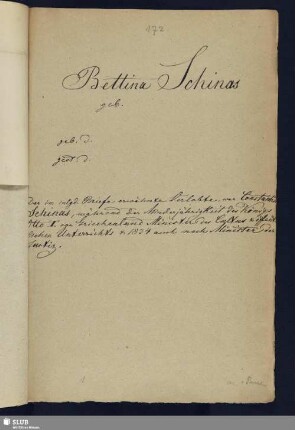 172
Bettina Schinas
geb.
geb. d.
gest. d.
Der im erwähnte Verlobte, war Constantin
Schinas, während der Minderjährigkeit des Königs
Otto I. von Griechenland Minister des Cultus u. öffentl.
Unterrichts u. 1834 auch noch Minister der
Justiz.
SLUB